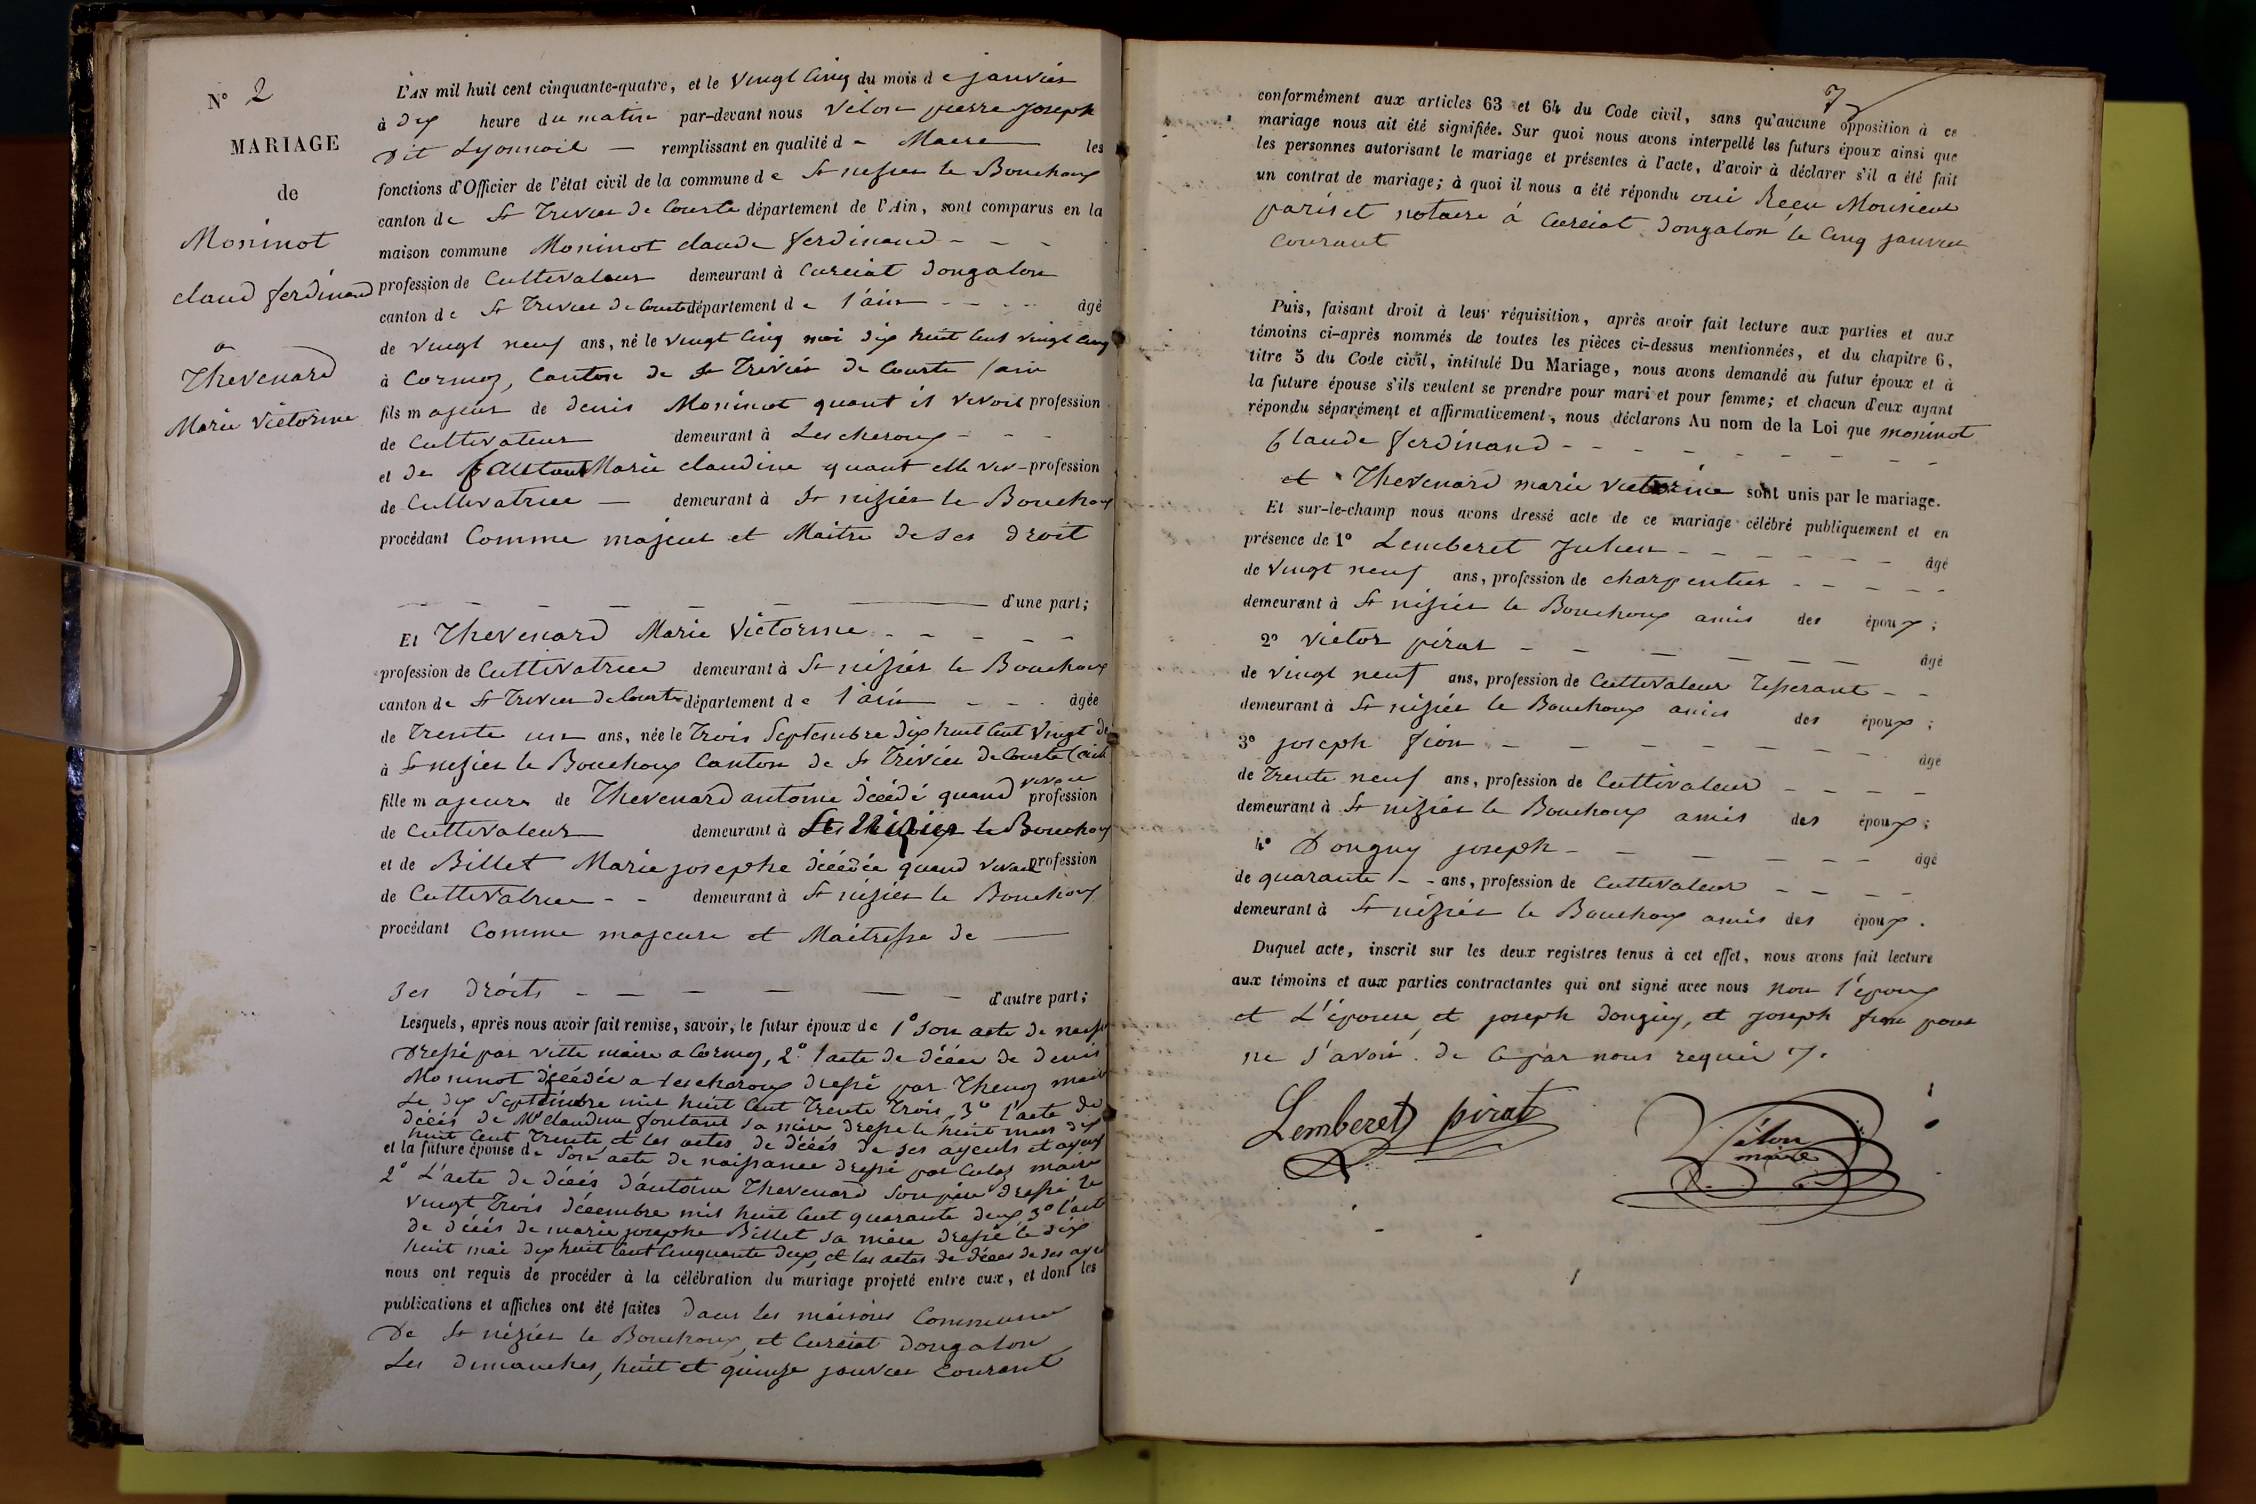 N° 2
MARIAGE
de
Moninot
claud ferdinand
a
Thevenard
Marie Victorine
L'AN mil huit cent cinquante-quatre, et le Vingt Cinq du mois de janvier
à dix heure du matin par-devant nous Velon pierre joseph
dit Lyonnois — remplissant en qualité de Maire les
fonctions d'Officier de l'état civil de la commune de St nizier le Bouchoux
canton de St Trivier de Courte département de l'Ain, sont comparus en la
maison commune Moninot claude ferdinand - - -
profession de Cultivateur demeurant à Curciat dongalon
canton de St Trivier de Courte département de l'ain - - - - âgé
de vingt neuf ans, né le vingt cinq mai dix huit cent vingt cinq
à Cormoz, Canton de St Trivier de Courte (ain
fils majeur de denis Moninot quant il vivoit profession
de Cultivateur demeurant à Lescheroux - - -
et de fautant Marie claudine quant elle viv- profession
de Cultivatrice — demeurant à St nizier le Bouchoux
procédant Comme majeur et Maitre de ses droit
— — — — — — d'une part;
Et Thevenard Marie Victorine - - - - -
profession de Cultivatrice demeurant à St nizier le Bouchoux
canton de St Trivier de Courte département de l'ain - - - âgée
de Trente un ans, née le Trois Septembre dix huit cent Vingt de
à St nizier le Bouchoux Canton de St Trivier de Courte (ain
fille majeure de Thevenard antoine décédé quand vivait profession
de Cultivateur demeurant à St Nizier le Bouchoux
et de Billet Marie josephe décédée quand vivait profession
de Cultivatrice - - demeurant à St nizier le Bouchoux
procédant Comme majeure et Maitresse de —
ses droits - — — — — — d'autre part;
Lesquels, après nous avoir fait remise, savoir, le futur époux de 1° son acte de naiss
dressé par vitte maire a Cormoz, 2° l'acte de décée de denis
Moninot décédée a Lescheroux dressé par Thenoz maire
Le dix Septembre mil huit cent Trente Trois, 3° l'acte de
décés de Me claudine fontant sa mère dressé le huit mars dix
huit cent Trente et les actes de décés de ses ayeuls et ayeux
et la future épouse de Son acte de naissance dressé par Culas maire
2° L'acte de décés d'antoine Thevenard son père dressé le
Vingt Trois décembre mil huit cent quarante deux 3° l'acte
de décés de marie josephe Billet sa mère dressé le dix
huit mai dix huit cent Cinquante deux, et les actes de décés de ses aye
nous ont requis de procéder à la célébration du mariage projeté entre eux, et dont les
publications et affiches ont été faites dans les maisons Commune
De St nizier le Bouchoux, et Curciat dongalon
Les dimanches, huit et quinze janvier Courant
7
conformément aux articles 63 et 64 du Code civil, sans qu'aucune opposition à ce
mariage nous ait été signifiée. Sur quoi nous avons interpellé les futurs époux ainsi que
les personnes autorisant le mariage et présentes à l'acte, d'avoir à déclarer s'il a été fait
un contrat de mariage; à quoi il nous a été répondu oui Recu Monsieur
pariset notaire á Curciat dongalon le Cinq janvier
Courant
Puis, faisant droit à leur réquisition, après avoir fait lecture aux parties et aux
témoins ci-après nommés de toutes les pièces ci-dessus mentionnées, et du chapitre 6,
titre 5 du Code civil, intitulé Du Mariage, nous avons demandé au futur époux et à
la future épouse s'ils veulent se prendre pour mari et pour femme; et chacun d'eux ayant
répondu séparément et affirmativement, nous déclarons Au nom de la Loi que moninot
Claude ferdinand - - - - - - - - -
et Thevenard marie victorine sont unis par le mariage.
Et sur-le-champ nous avons dressé acte de ce mariage célébré publiquement et en
présence de 1° Lemberet Julien - - - - - - âgé
de Vingt neuf ans, profession de charpentier - - - - -
demeurant à St nizier le Bouchoux amis des époux;
2° victor pirat - — — — — — âgé
de vingt neuf ans, profession de Cultivateur Tisserant - -
demeurant à St nizier le Bouchoux amis des époux;
3° joseph fion - — — — — — — âgé
de Trente neuf ans, profession de Cultivateur - - - -
demeurant à St nizier le Bouchoux amis des époux;
4° Donguy joseph - — — — — — âgé
de quarante - - ans, profession de Cultivateur - - - -
demeurant à St nizier le Bouchoux amis des époux.
Duquel acte, inscrit sur les deux registres tenus à cet effet, nous avons fait lecture
aux témoins et aux parties contractantes qui ont signé avec nous non l'époux
et L'épouse et joseph donguy, et joseph fion pour
ne s'avoir. de ce par nous requis
Lemberet pirat
Vélon
maire